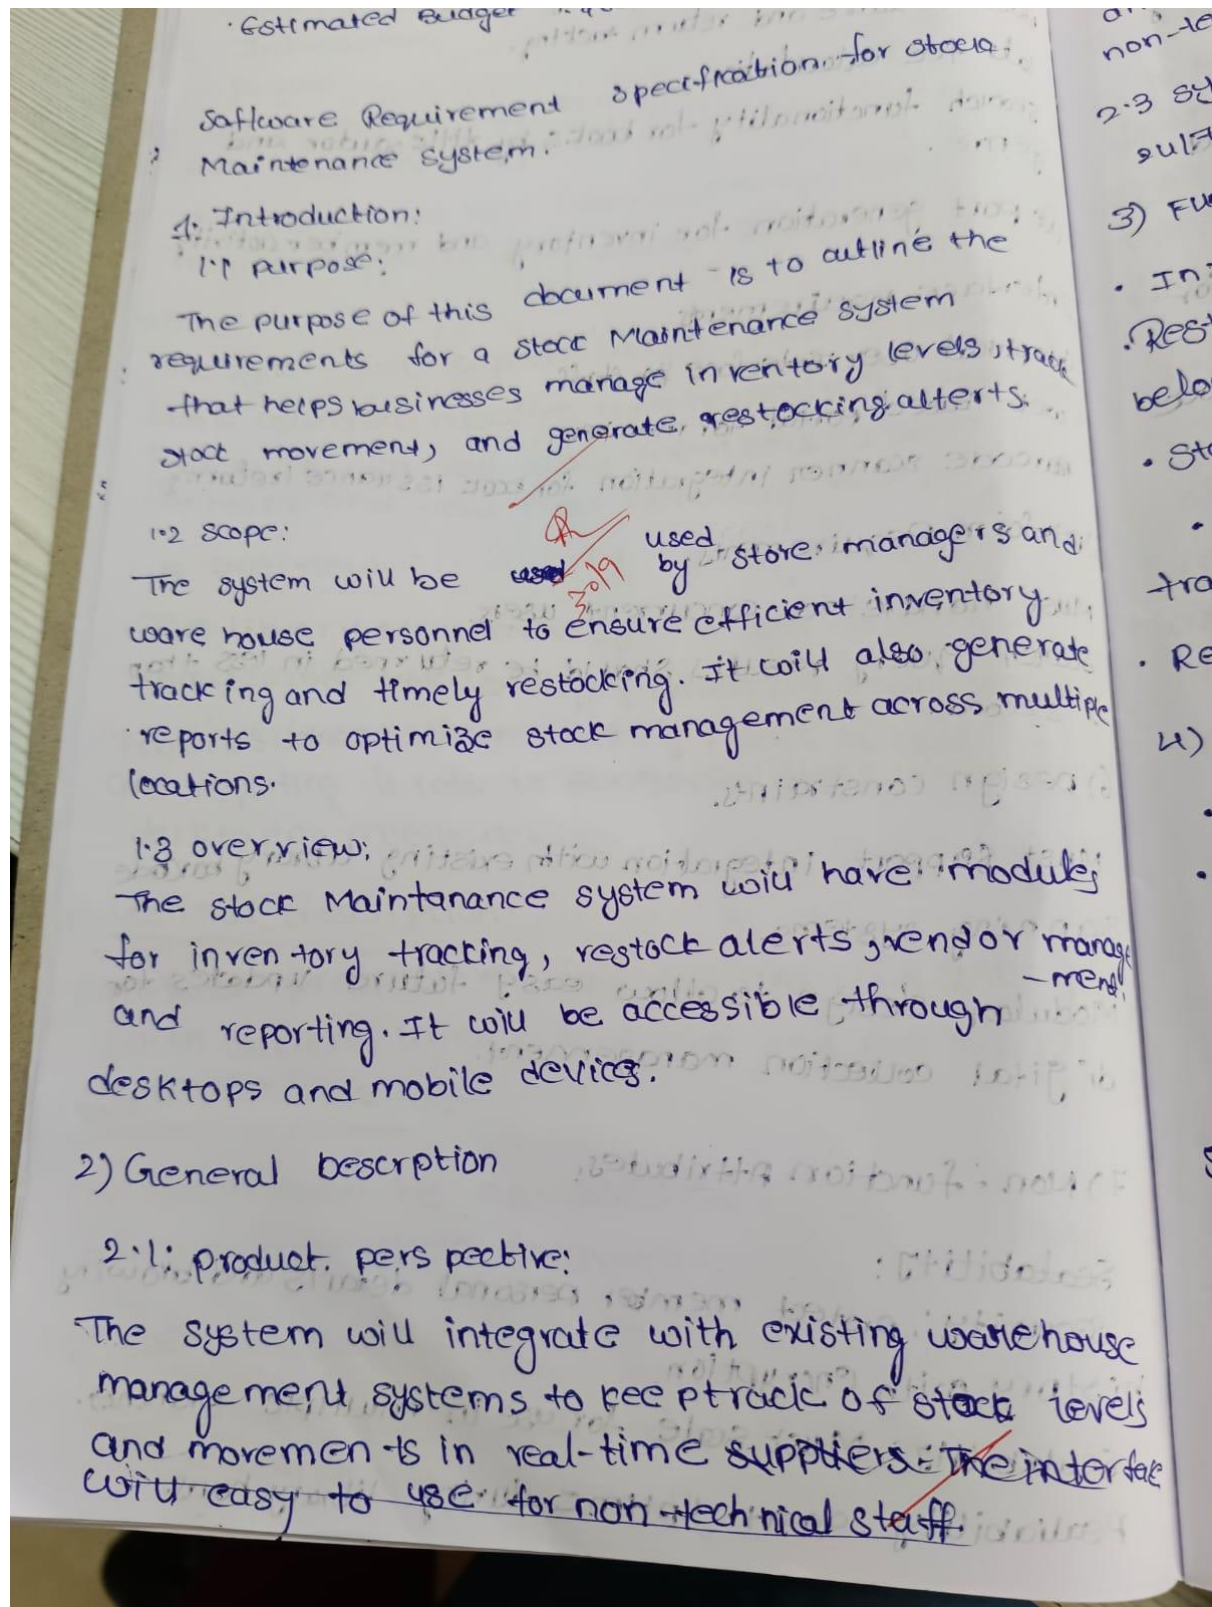 · Estimated Budget
Saftware Requirement specification for stock
Maintenance system.
1. Introduction:
1.1 purpose:
The purpose of this document is to outline the
requirements for a stock Maintenance system
that helps businesses manage inventory levels, track
stock movement, and generate restocking alterts.
1.2 scope:
The system will be used used by store managers and
ware house personnel to ensure efficient inventory
30/9
tracking and timely restocking. It will also generate
reports to optimize stock management across multiple
locations.
1.3 overview:
The stock Maintanance system will have modules
for inventory tracking, restock alerts, vendor manage
-ment
and reporting. It will be accessible through
desktops and mobile devices.
2) General Descrption
2.1: product perspective:
The system will integrate with existing warehouse
management systems to keep track of stock levels
and movements in real-time suppliers. The interface
will easy to use for non-technical staff.
non-te
2.3 sy
3) Fu
· In
· Rest
belo
· Sto
tra
· Re
4)